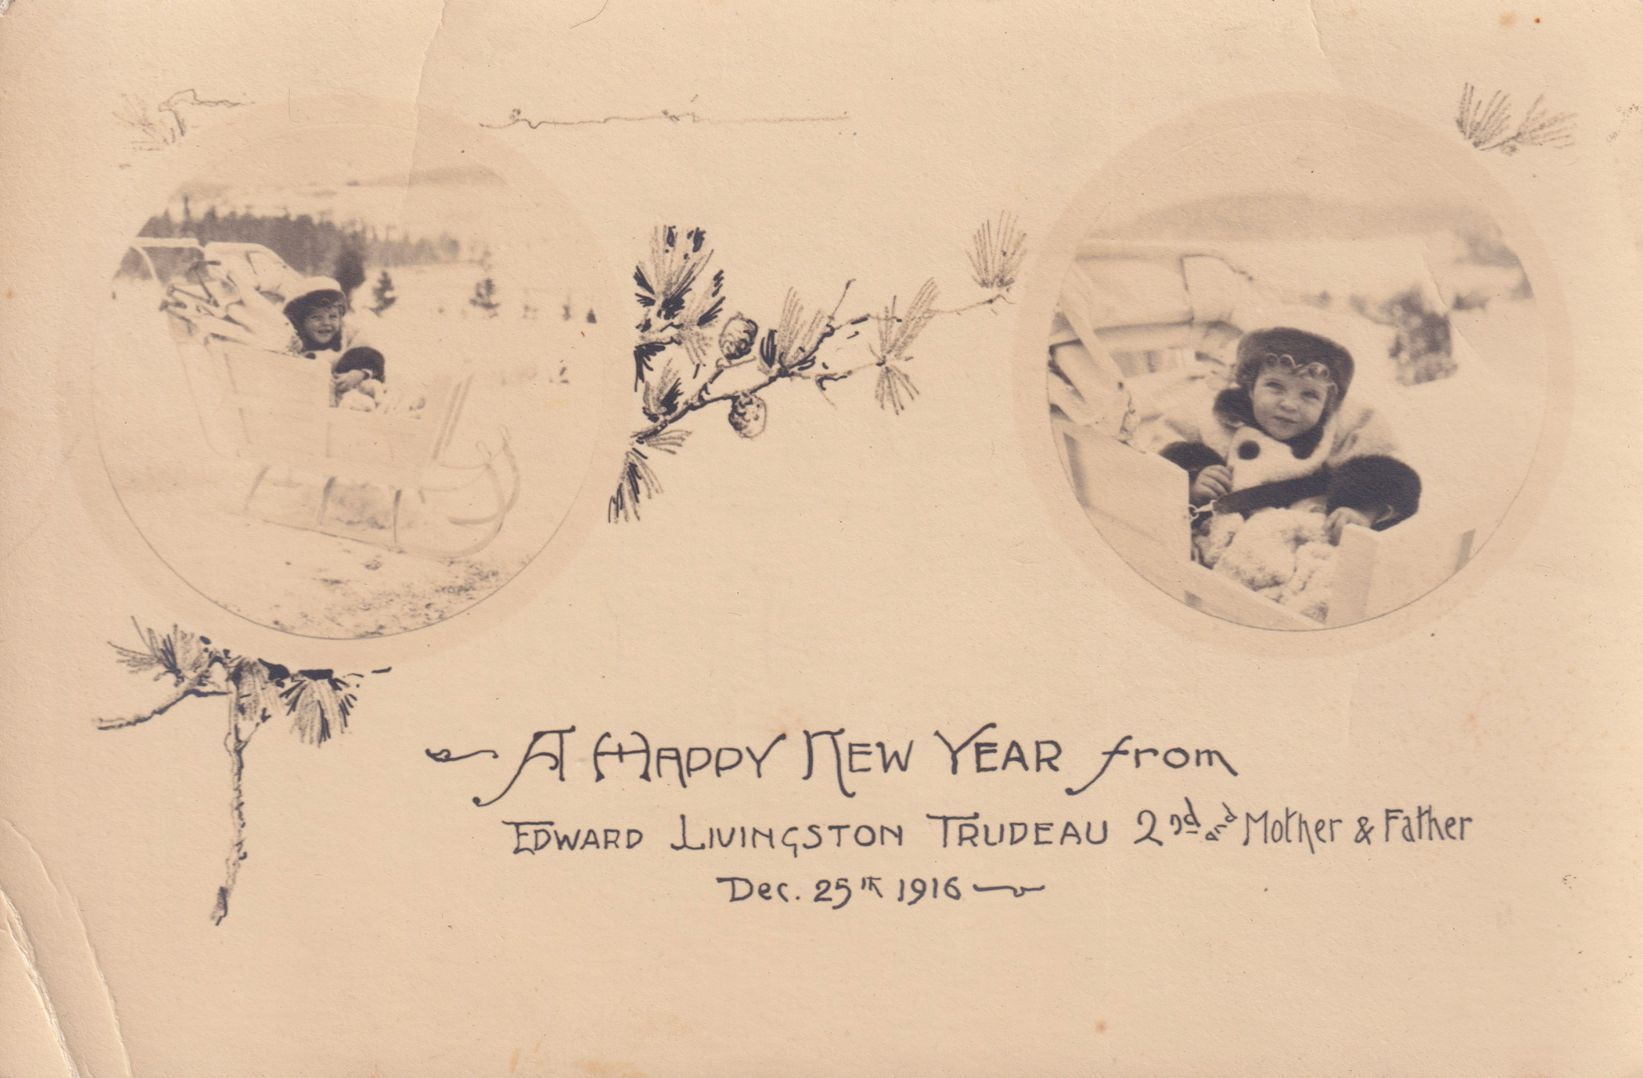 A HAPPY NEW YEAR from
EDWARD LIVINGSTON TRUDEAU 2nd and Mother & Father
Dec. 25th 1916